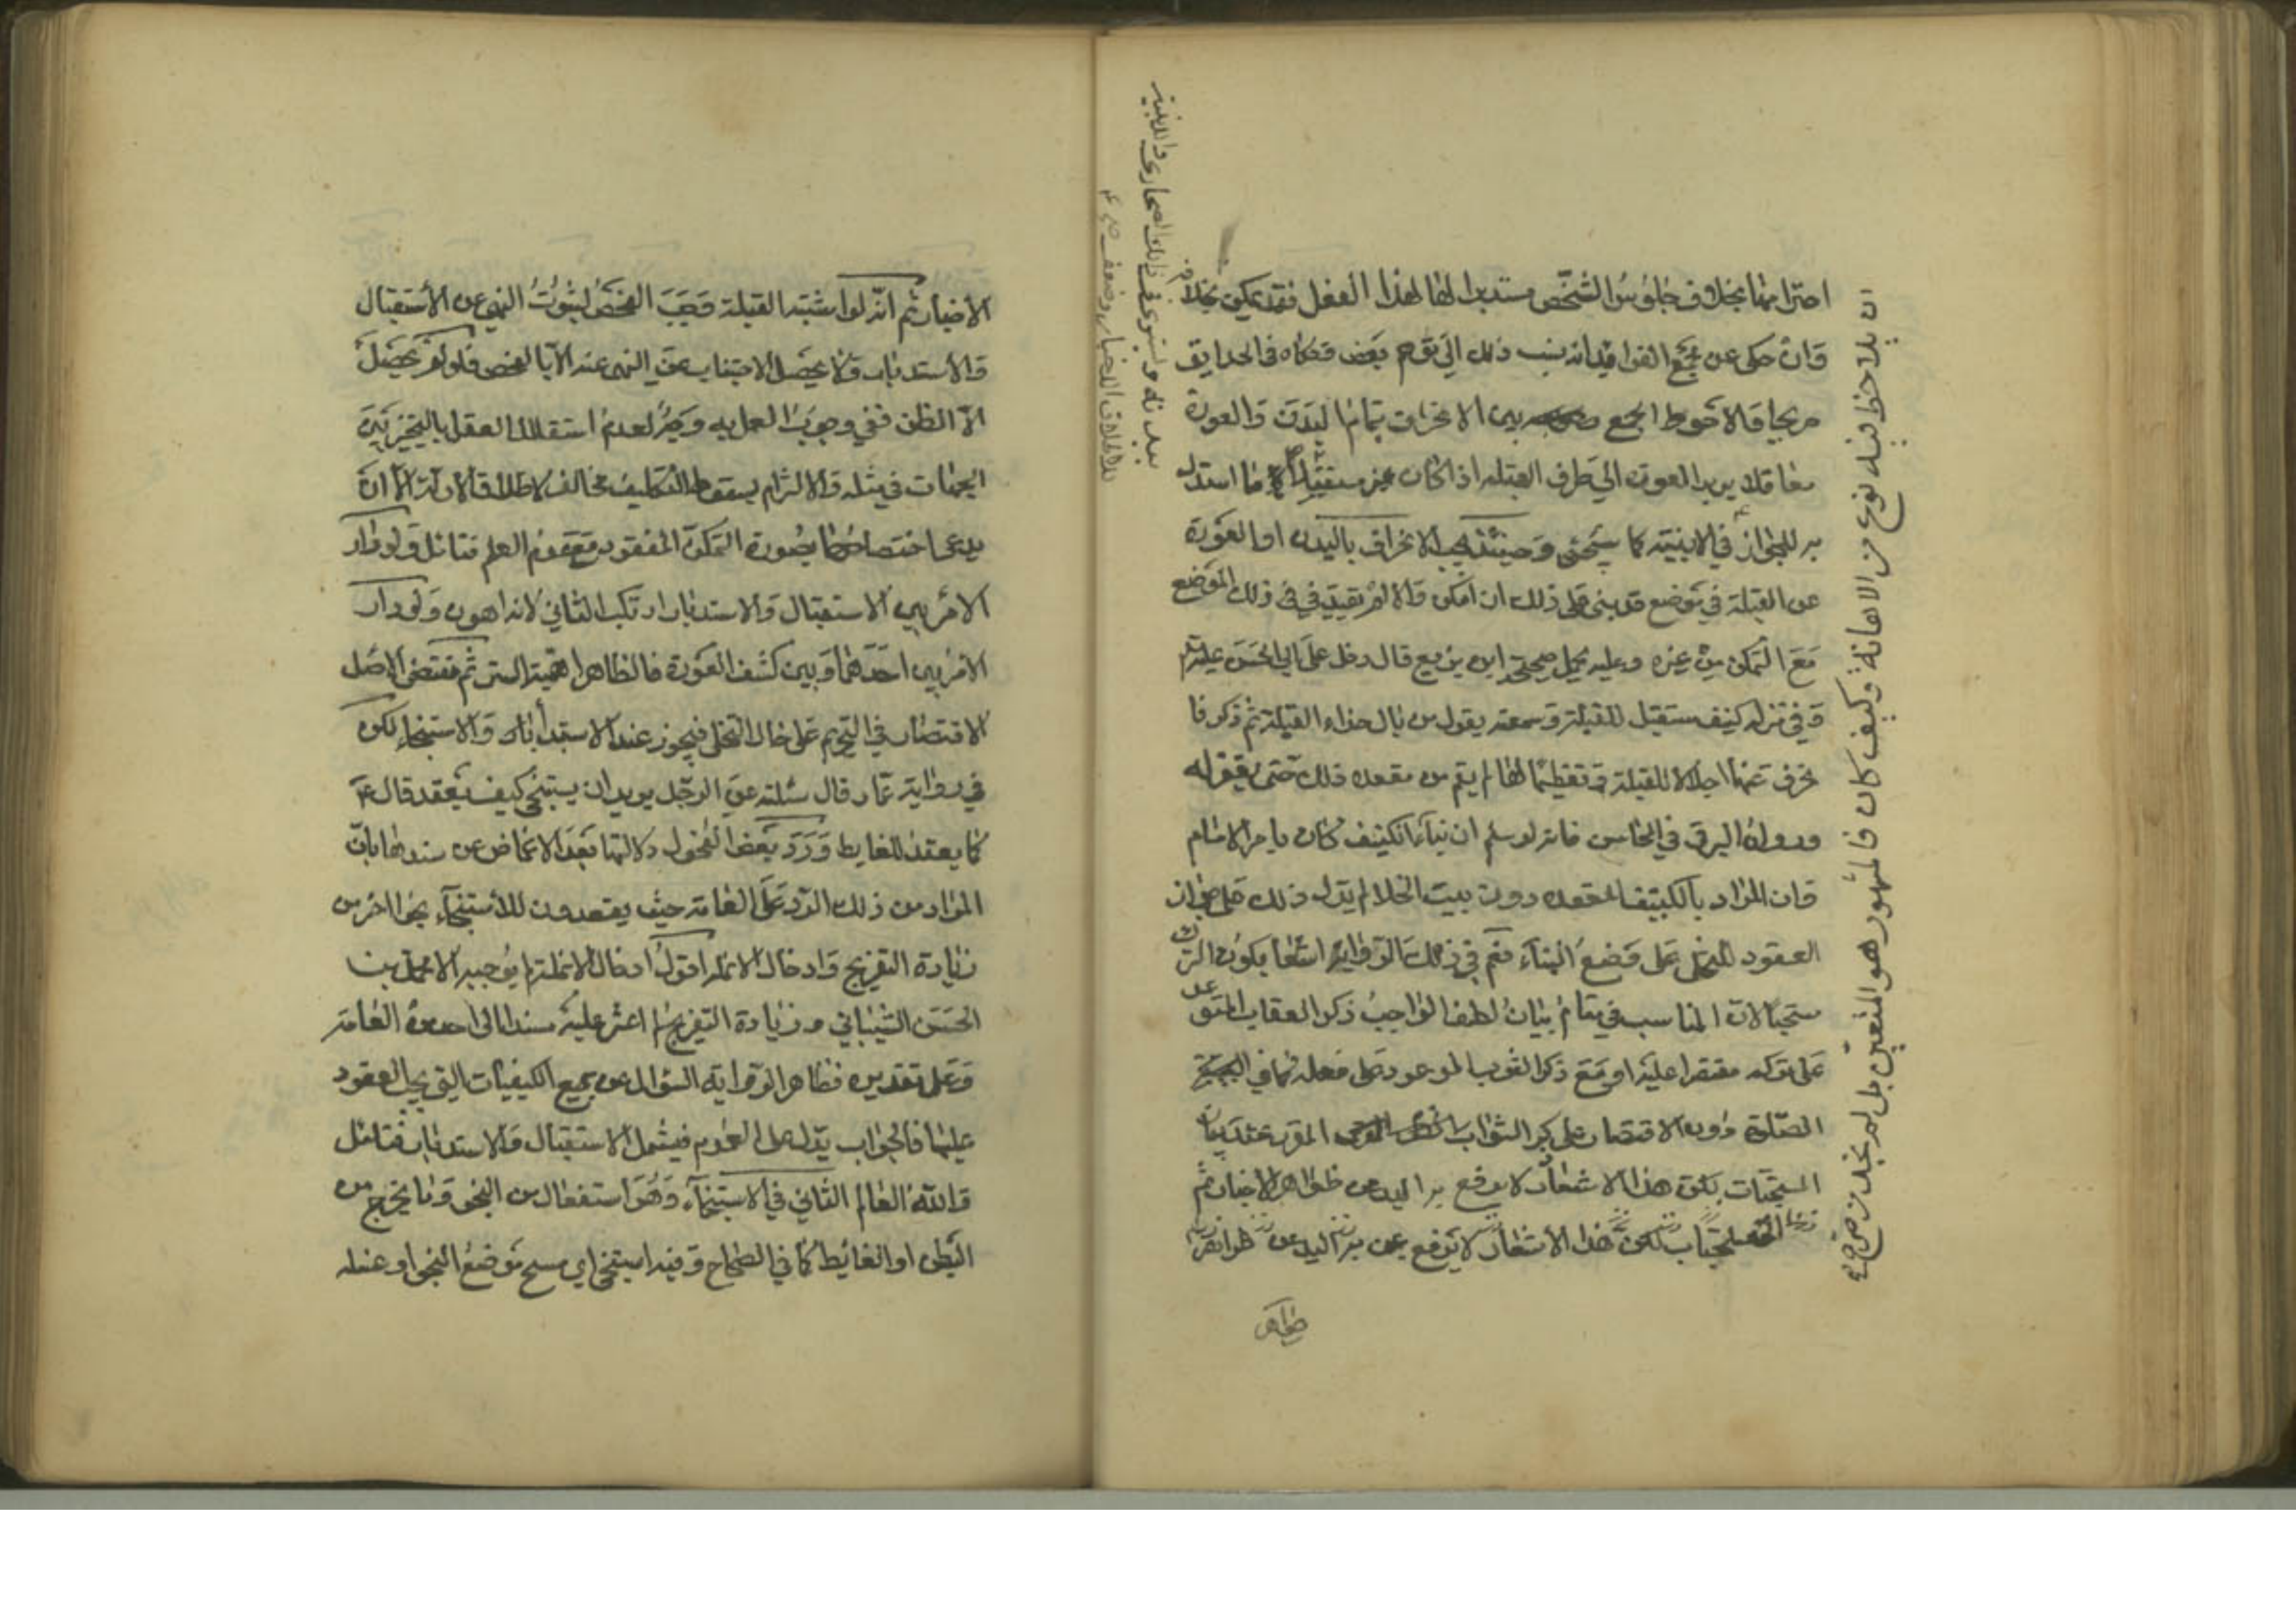 احترامها بخلاف جلوس الشخص مستدبرا لها لهذا الفعل فقد يكون بخلاف
وان حكى عن مجمع الفوائد انه ينسب ذلك الى توهم بعض وحكاه في الحدايق
صريحا والاحوط الجمع بين الانحراف بتمام البدن والعورة
معا فلا يدير العورة الى طرف القبلة اذا كان غير مستقبل لها استدل
به للجواز في الابنية كما سيجئ وحينئذ يجب الانحراف بالبدن او العورة
عن القبلة في موضع قد بنى على ذلك ان امكن والا لم يقيد في ذلك الموضع
مع التمكن من غيره وعليه يحمل صحيحة ابن بزيع قال دخل على ابي الحسن عليه السلام
وفي منزله كنيف مستقبل للقبلة وسمعته يقول من بال حذاء القبلة ثم ذكر فا
نحرف عنها اجلالا للقبلة وتعظيما لها لم يقم من مقعده ذلك حتى يغفر له
ورواه البرقي في المحاسن فانه لو سلم ان بناء الكنيف كان بامر الامام
وان المراد بالكنيف المقعد دون بيت الخلا لم يدل ذلك على جواز
العقود للتخلي على وضع البناء نعم في ذلك الرواية اشعار بكون الترك
مستحبا لان المناسب في مقام بيان لطف الواجب ذكر العقاب المتوعد
على تركه مقتصرا عليه او مع ذكر الثواب الموعود على فعله كما في
الصلوة دون الاقتصار على ذكر الثواب المقرر عند بيان
المستحبات لكن هذا الاشعار لا يرفع به اليد عن ظواهر الاخبار ثم
المستحبات لكن هذا الاشعار لا يرفع به اليد عن ظواهر
ظواهر
ان يلاحظ فيه نوع من الاهانة وكيف كان فالمشهور هو المتعين بل لم نجد من
بعد ته ويستوي في ذلك الصحاري والابنية
لاطلاق الاخبار وضعف
الاخبار ثم انه لو اشتبه القبلة وجب الفحص لثبوت النهي عن الاستقبال
والاستدبار ولا يحصل الاجتناب عن النهي عنه الا بالفحص فلو لم يحصل
الا الظن ففي وجوب العمل به وجه لعدم استقلال العقل بالتخيير بين
الجهات في مثله والالتزام بسقوط التكليف مخالف لاطلاق الادلة الا ان
يدعى اختصاصها بصورة التمكن المفقود مع عدم العلم فتامل ولو دار
الامر بين الاستقبال والاستدبار ارتكب الثاني لانه اهون ولو دار
الامر بين احدهما وبين كشف العورة فالظاهر اهمية الستر ثم مقتضى الاصل
الاقتصار في التحريم على حال التخلي فيجوز عند الاستبراء والاستنجاء لكن
في رواية عمار قال سئلته عن الرجل يريد ان يستنجي كيف يقعد قال ع
كما يقعد للغايط ورد بعض الفحول دلالتها بعد الاغماض عن سندها بان
المراد من ذلك الرد على العامة حيث يقعدون للاستنجاء نحوا اخر من
زيادة التفريج وادخال الانملة اقول ادخال الانملة لم يوجبه الا محمد بن
الحسن الشيباني وزيادة التفريج لم اعثر عليه مسندا الى احد من العامة
وعلى تقديره فظاهر الرواية السؤال عن جميع الكيفيات التي يجب العقود
عليها فالجواب يدل على العموم فيشمل الاستقبال والاستدبار فتامل
والله العالم الثاني في الاستنجاء وهو استفعال من النجو وما يخرج من
البطن او الغائط كما في الصحاح وفيه استنجى اي مسح موضع النجو او غسله